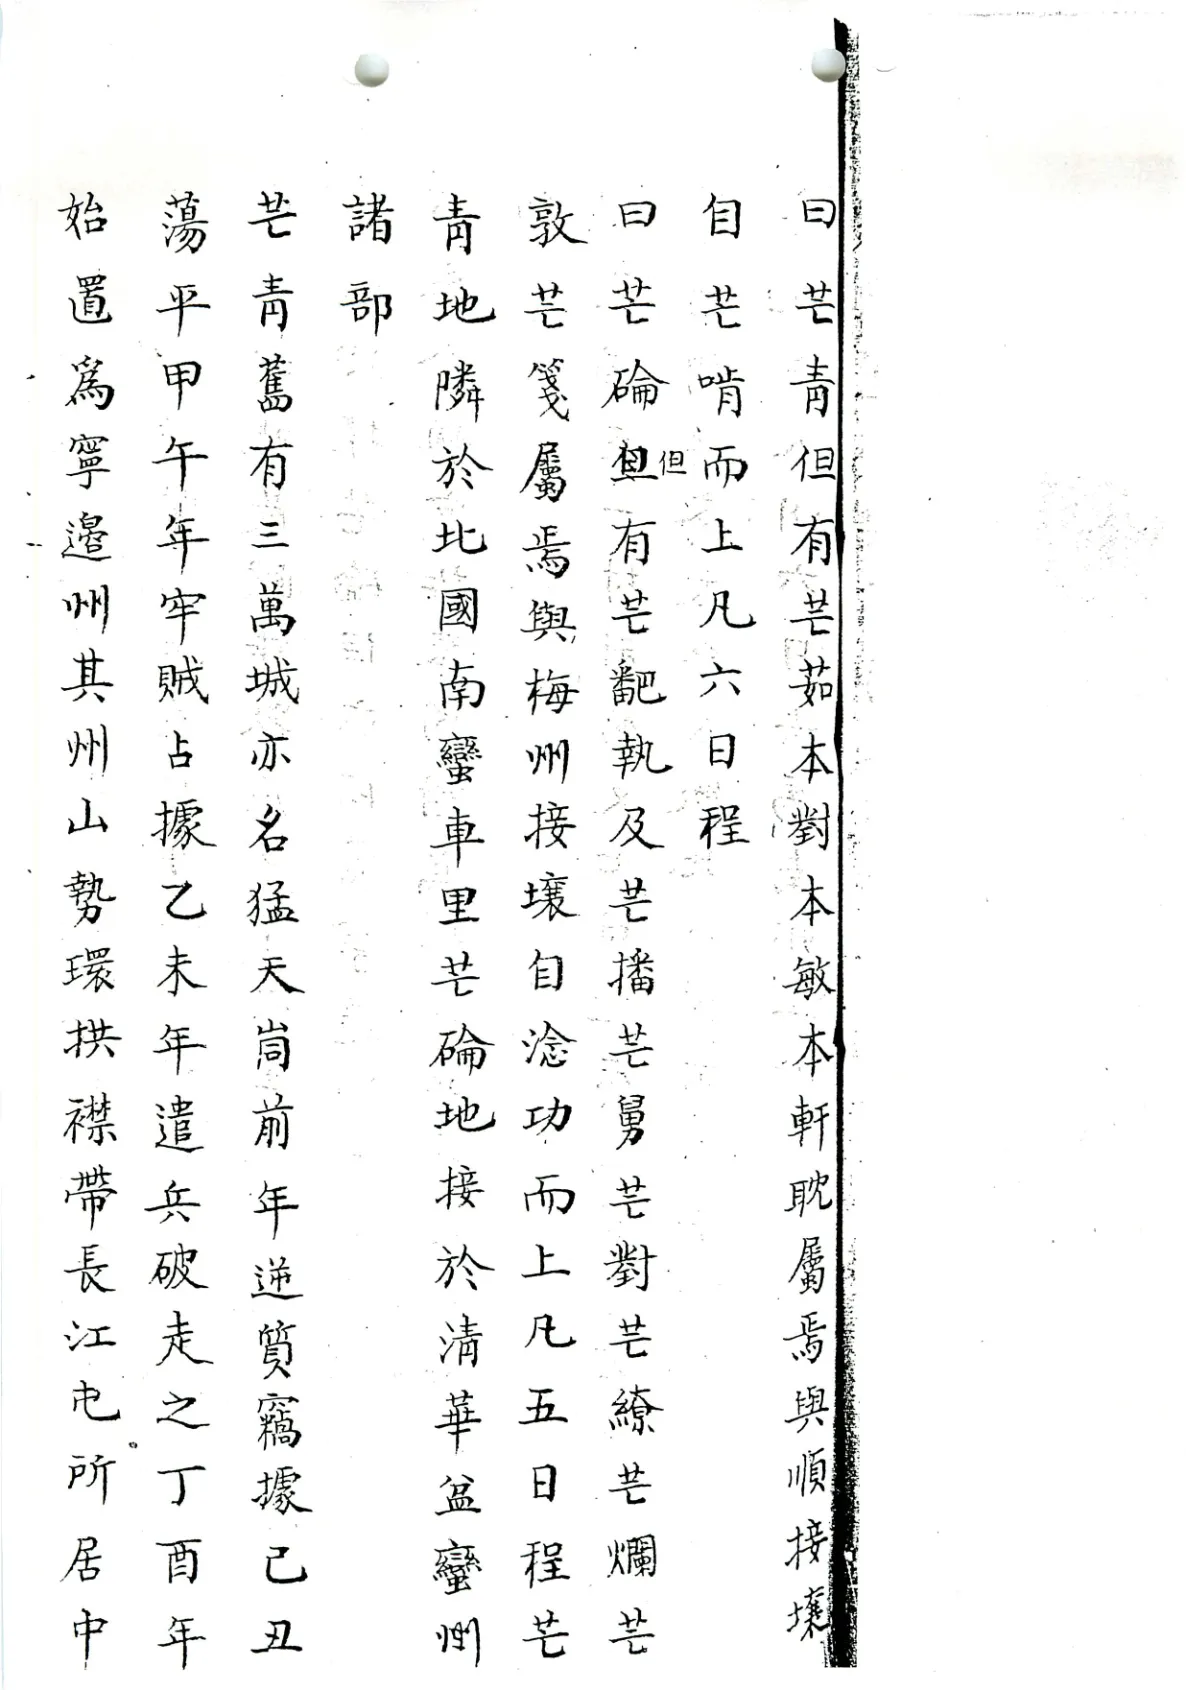 曰芒青但有芒茹本對本敏本軒耽屬焉與順接壤
自芒啃而上凡六日程
曰芒碖但有芒䎱執及芒播芒舅芒對芒繚芒爛芒
但
敦芒箋屬焉與梅州接壤自淰功而上凡五日程芒
青地隣於北國南蠻車里芒碖地接於清華盆蠻州
諸部
芒青舊有三萬城亦名猛天峝前年逆質竊據己丑
蕩平甲午年牢賊占據乙未年遣兵破走之丁酉年
始置爲寧邉州其州山勢環拱襟帶長江屯所居中